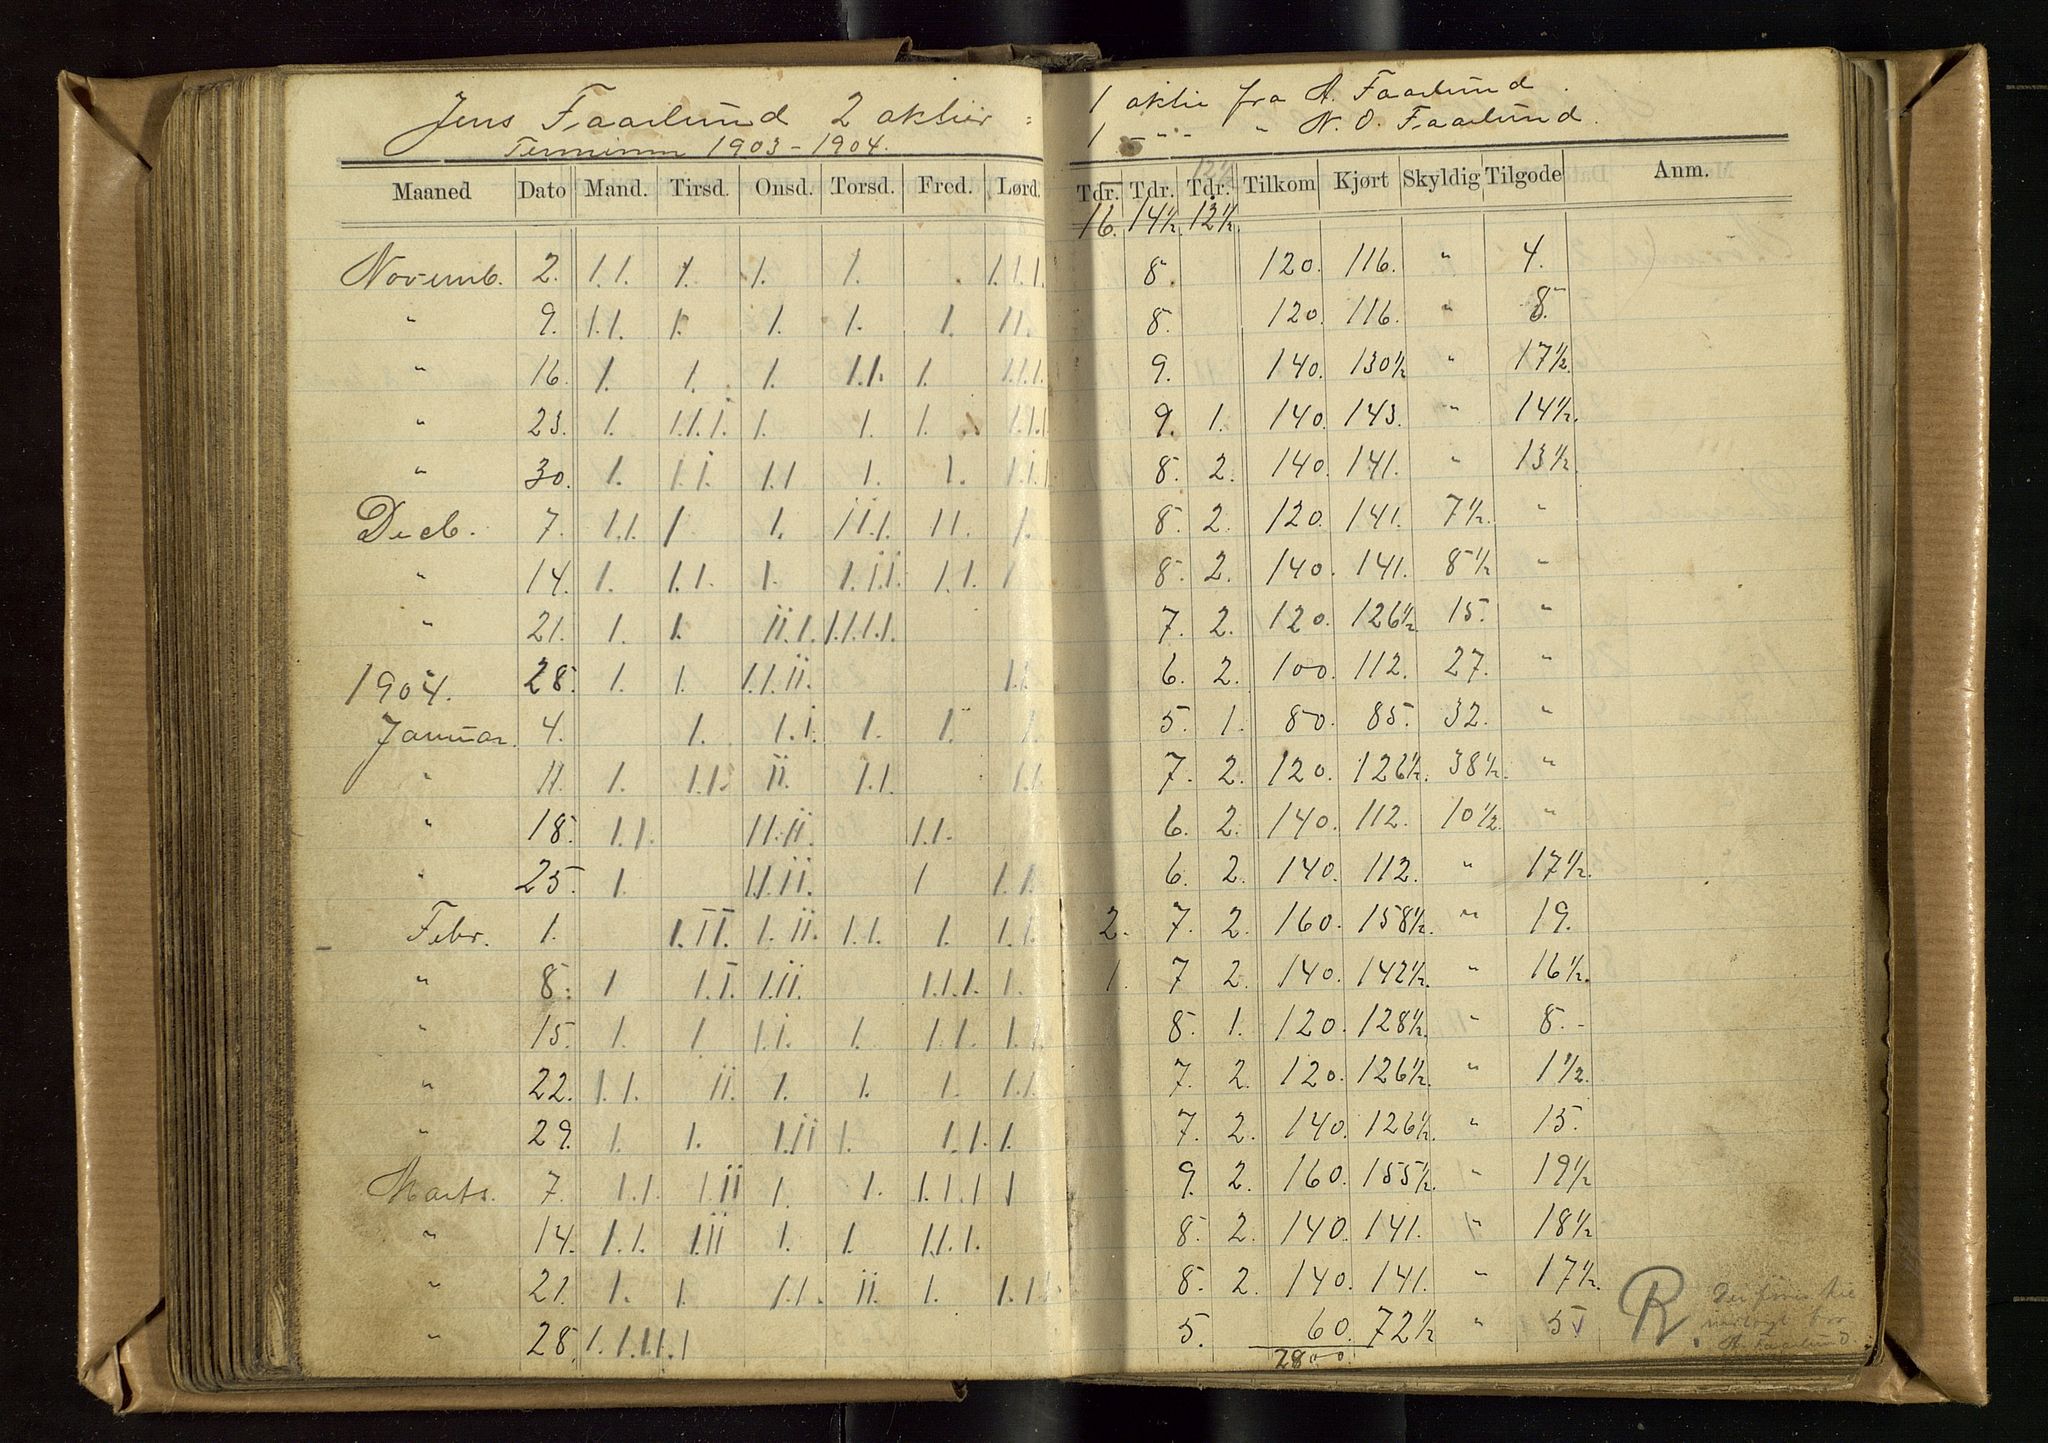 Jens Faarlund 2 aktier : 1 aktie fra A. Faarlund.
Terminen 1903-1904. 1 - " - " N. O. Faarlund.
12½
Maaned Dato Mand. Tirsd. Onsd. Torsd. Fred. Lørd. Tdr. Tdr. Tdr. Tilkom Kjørt Skyldig Tilgode Anm.
16. 14½. 12½.
Novemb. 2. 1.1. 1. 1. 1. 1.1.1. 8. 120. 116. " 4.
" 9. 1.1. 1. 1. 1. 1. 11. 8. 120. 116. " 8.
" 16. 1. 1. 1. 1.1. 1. 1.1.1. 9. 140. 130½ " 17½.
" 23. 1. 1.1.1. 1. 1. 1. 1.1.1 9. 1. 140. 143. " 14½.
" 30. 1. 1.1. 1.1 1. 1. 1.1.1 8. 2. 140. 141. " 13½
Decb. 7. 1.1. 1 1. 111. 11. 1. 8. 2. 120. 141. 7½. "
" 14. 1. 1.1. 1. 1.11. 1.1. 1 8. 2. 140. 141. 8½ "
" 21. 1. 1. 11.1. 1.1.1.1. 7. 2. 120. 126½. 15. "
28. 1. 1. 1.1.11. 1.1. 6. 2. 100. 112. 27. "
1904.
Januar. 4. 1. 1.1. 1. 1. 1. 5. 1. 80. 85. 32. "
" 11. 1. 1.1. 11. 1.1. 1.1 7. 2. 120. 126½. 38½. "
" 18. 1.1. 11.11. 1.1. 6. 2. 140. 112. 10½. "
" 25. 1. 11.11. 1 1.1. 6. 2. 140. 112. " 17½.
Febr. 1. 1.11. 1.11. 1.1. 1. 1.1. 2. 7. 2. 160. 158½. " 19.
" 8. 1 1.1. 1.11. 1.1.1. 1. 1. 7 2. 140. 142½. " 16½.
" 15. 1. 1. 1.1. 1. 1.1. 1.1. 8. 1. 120. 128½. " 8.-
" 22. 1.1. 11. 1. 1. 1. 1.1. 7. 2. 120. 126½. " 1½.
" 29. 1. 1. 1.11 1. 1.1. 1. 7. 2. 140. 126½. " 15.
Marts. 7. 1.1. 1.11 1. 1. 1.1.1 1 9. 2. 160. 155½. " 19½
" 14. 1.1. 1.11 1. 1. 11.1. 8. 2. 140. 141. " 18½
" 21. 1. 1. 1.1. 11. 1. 1.1.1 8. 2. 140. 141. " 17½.
" 28. 1.1.11.1 5. 60. 72½ " 5
2800
R.
A. Faarlund.